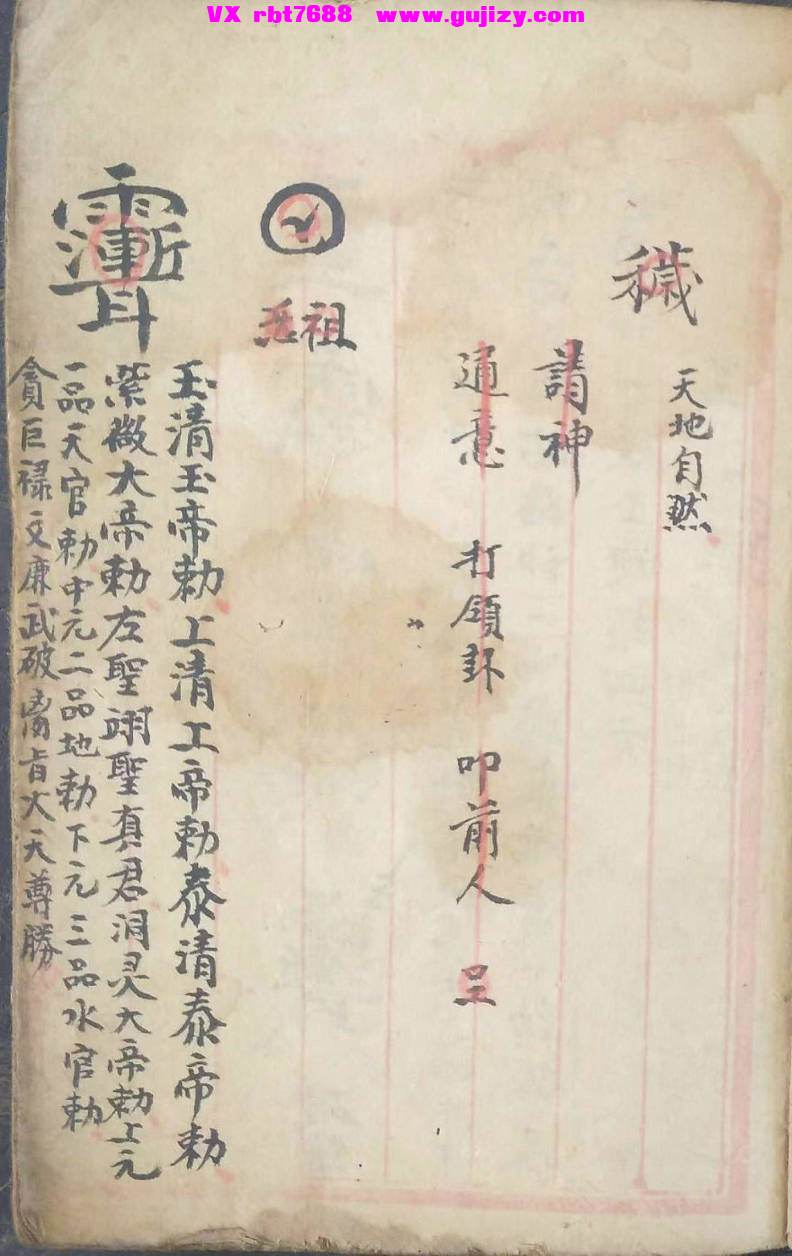 VX rbt7688 www.gujizy.com
穢
天地自然
請神
通意 打領卦 叩前人
祖
玉清玉帝勅上清上帝勅泰清泰帝勅
紫微大帝勅左聖翊聖真君洞灵大帝勅上元
一品天官勅中元二品地勅下元三品水官勅
貪巨禄文廉武破大天尊勝